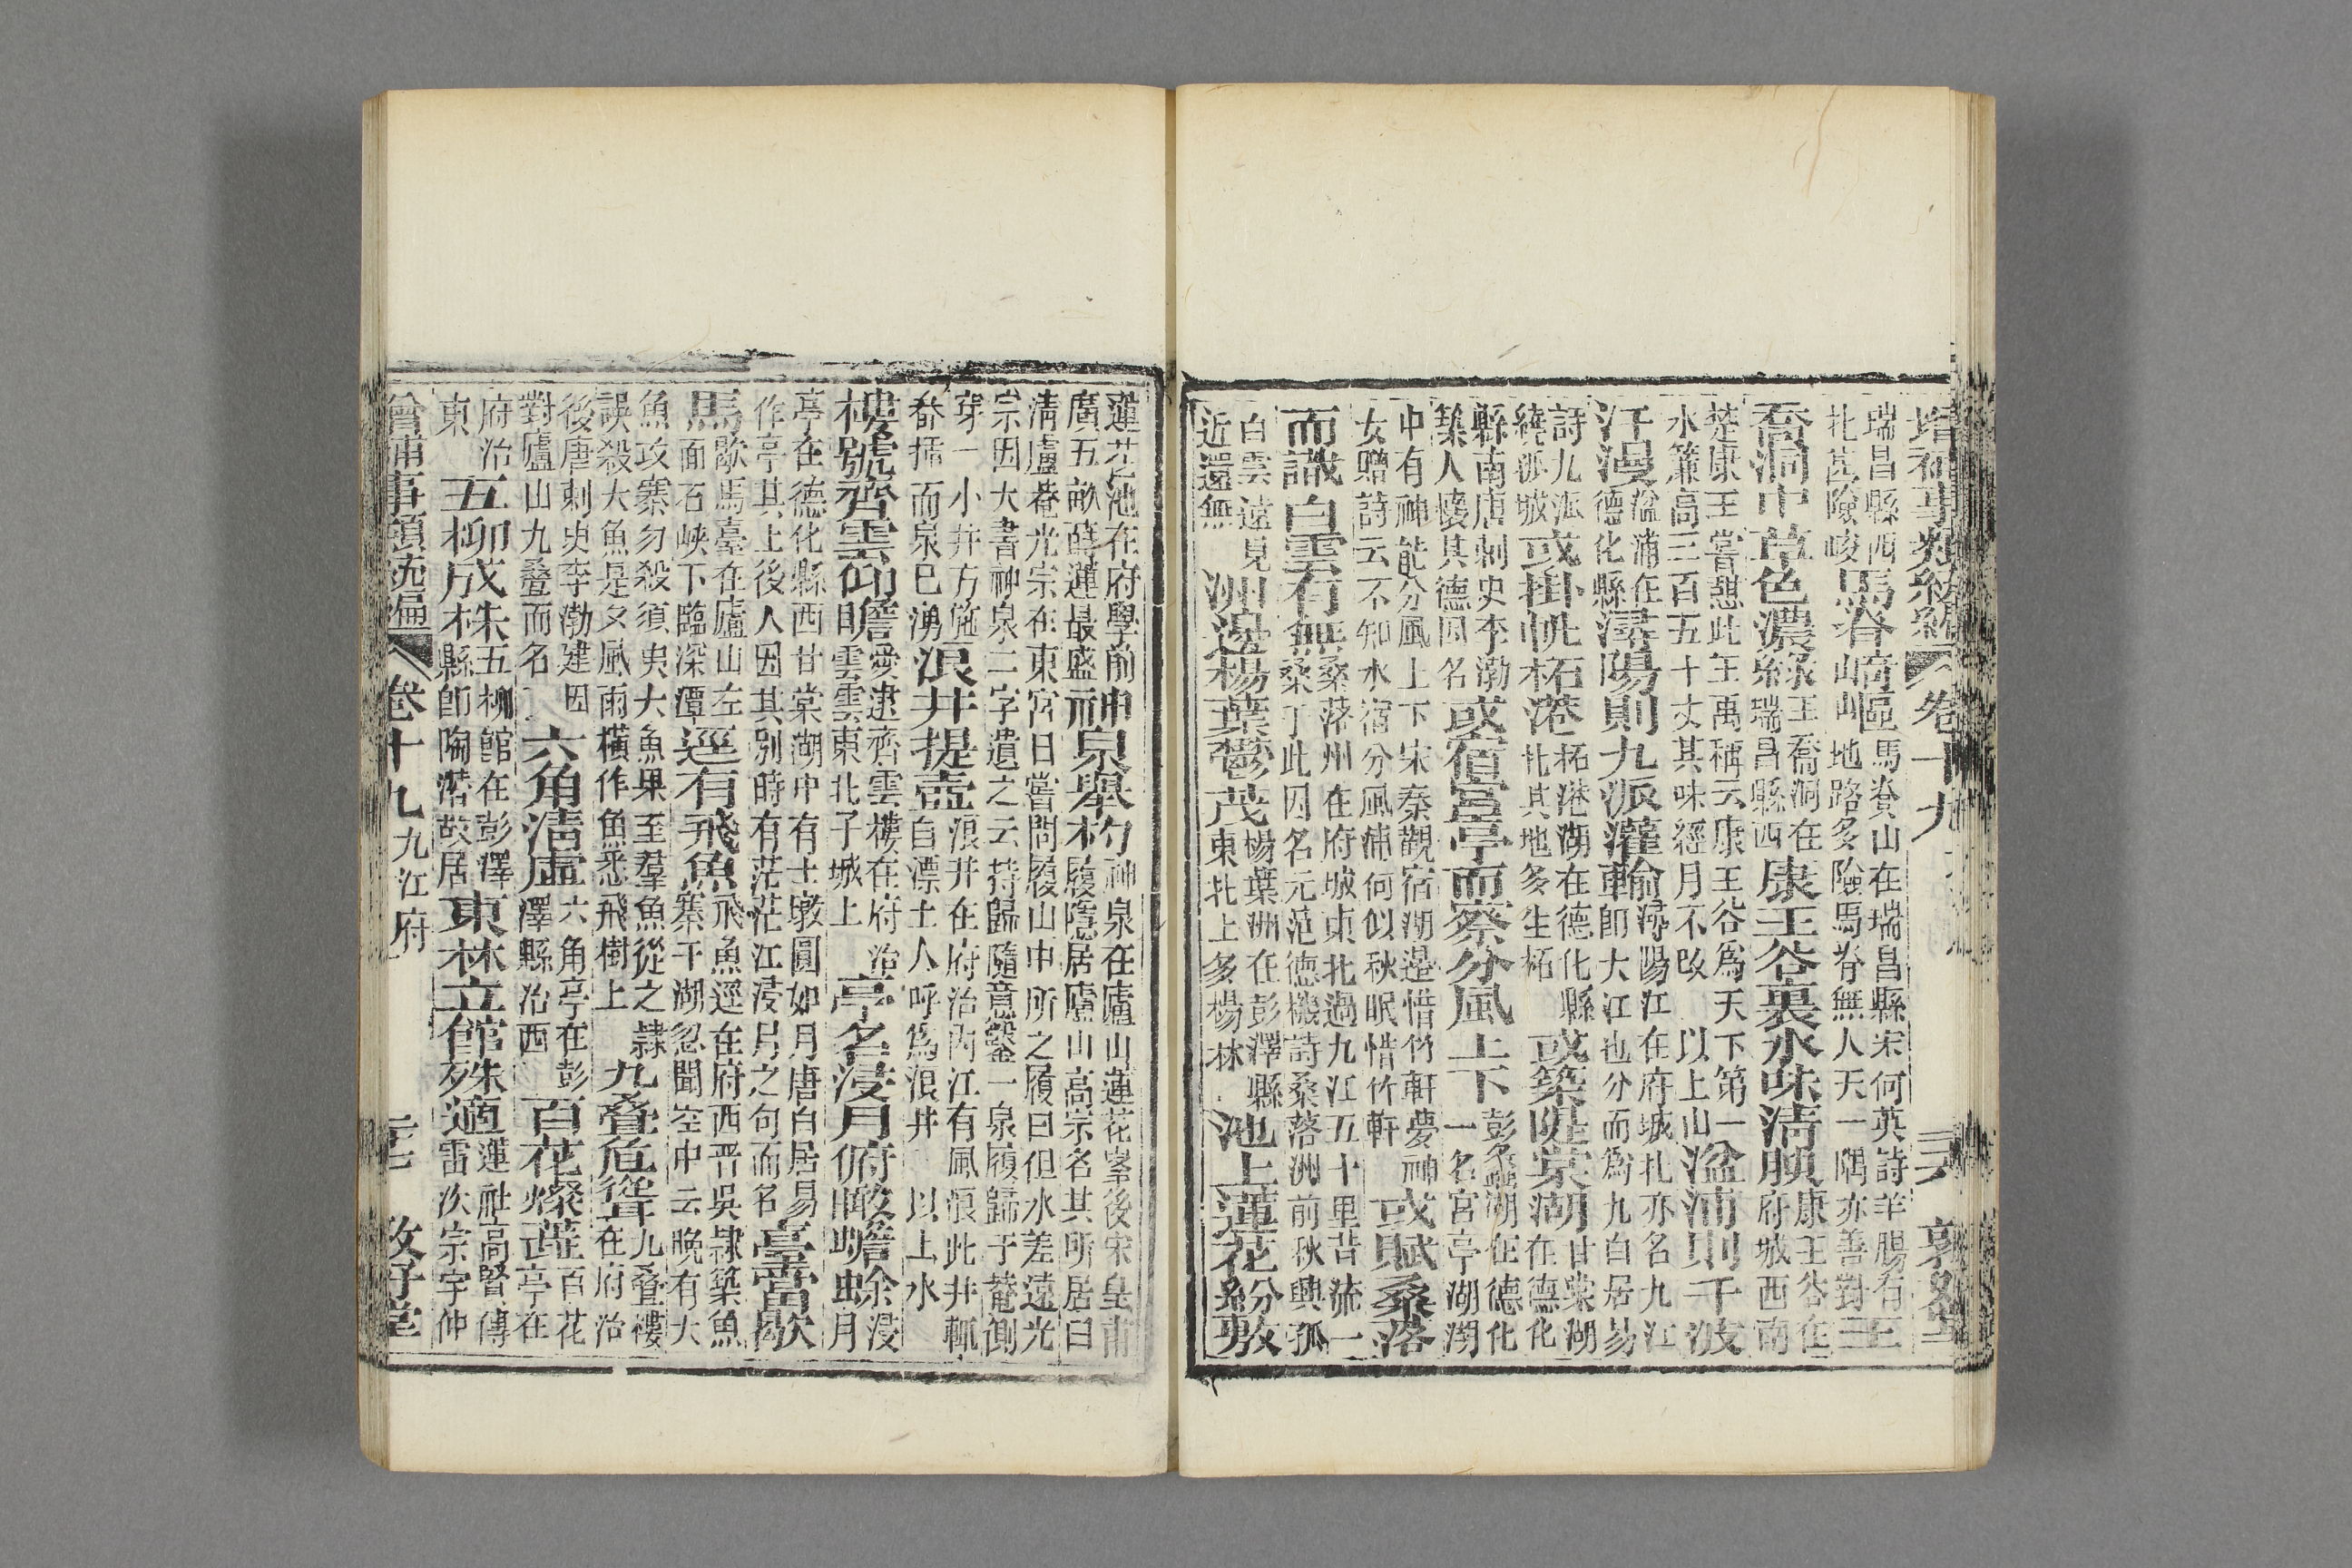 增補事類統編 卷十九
瑞昌縣西
北甚險峻馬脊崎嶇馬脊山在瑞昌縣宋何英詩羊腸有三
山山地路多險馬脊無人天一隅亦善對
喬洞中草色濃綠王喬洞在瑞昌縣西康王谷裏水味清腴康王谷在府城西南
楚康王嘗憩此王禹稱云康王谷爲天下第一
水簾高三百五十丈其味經月不改 以上山湓浦則千波
汗漫湓浦在德化縣潯陽則九派灌輸潯陽江在府城北亦名九江卽大江也分而爲九白居易
詩九派
繞孤城或掛帆柘港柘港湖在德化縣北其地多生柘或築隄棠湖甘棠湖在德化
縣南唐刺史李渤
築人懷其德因名或宿宮亭而察分風上下彭蠡湖在德化一名宮亭湖湖
中有神能分風上下宋秦觀宿湖邊惜竹軒夢神
女贈詩云不知水宿分風浦何似秋眠惜竹軒或賦桑落
而識白雲有無桑落州在府城東北過九江五十里昔流一桑于此因名元范德機詩桑落洲前秋興孤
白雲遠見
近還無洲邊楊葉鬱茂楊葉洲在彭澤縣東北上多楊林池上蓮花紛敷
蓮花池在府學前
廣五畝蒔蓮最盛神泉舉杓神泉在廬山蓮花峯後宋皇甫履隱居廬山高宗名其所居曰
清虛菴光宗在東宮日嘗問履山中所之履曰但水差遠光
宗因大書神泉二字遺之云持歸隨意鑿一泉履歸于菴側
穿一小井方施
畚揷而泉已湧浪井提壺浪井在府治內江有風浪此井輒自漂土人呼爲浪井 以上水
樓號齊雲仰瞻靉靆齊雲樓在府治東北子城上亭名浸月俯瞰蟾蜍浸月
亭在德化縣西甘棠湖中有土墩圓如月唐白居易
作亭其上後人因其別時有茫茫江浸月之句而名臺嘗歇
馬歇馬臺在廬山左
面石峽下臨深潭逕有飛魚飛魚逕在府西晋吳隸築魚寨于湖忽聞空中云晚有大
魚攻寨勿殺須臾大魚果至羣魚從之隸
誤殺大魚是夕風雨橫作魚悉飛樹上九叠危聳九叠樓在府治
後唐刺史李渤建因
對廬山九叠而名六角淸虛六角亭在彭澤縣治西百花燦蔬百花亭在
府治
東五柳成株五柳館在彭澤縣卽陶潛故居東林立館殊適蓮社高賢傳雷次宗字仲
增補事類統編 卷十九 九江府 敦好堂